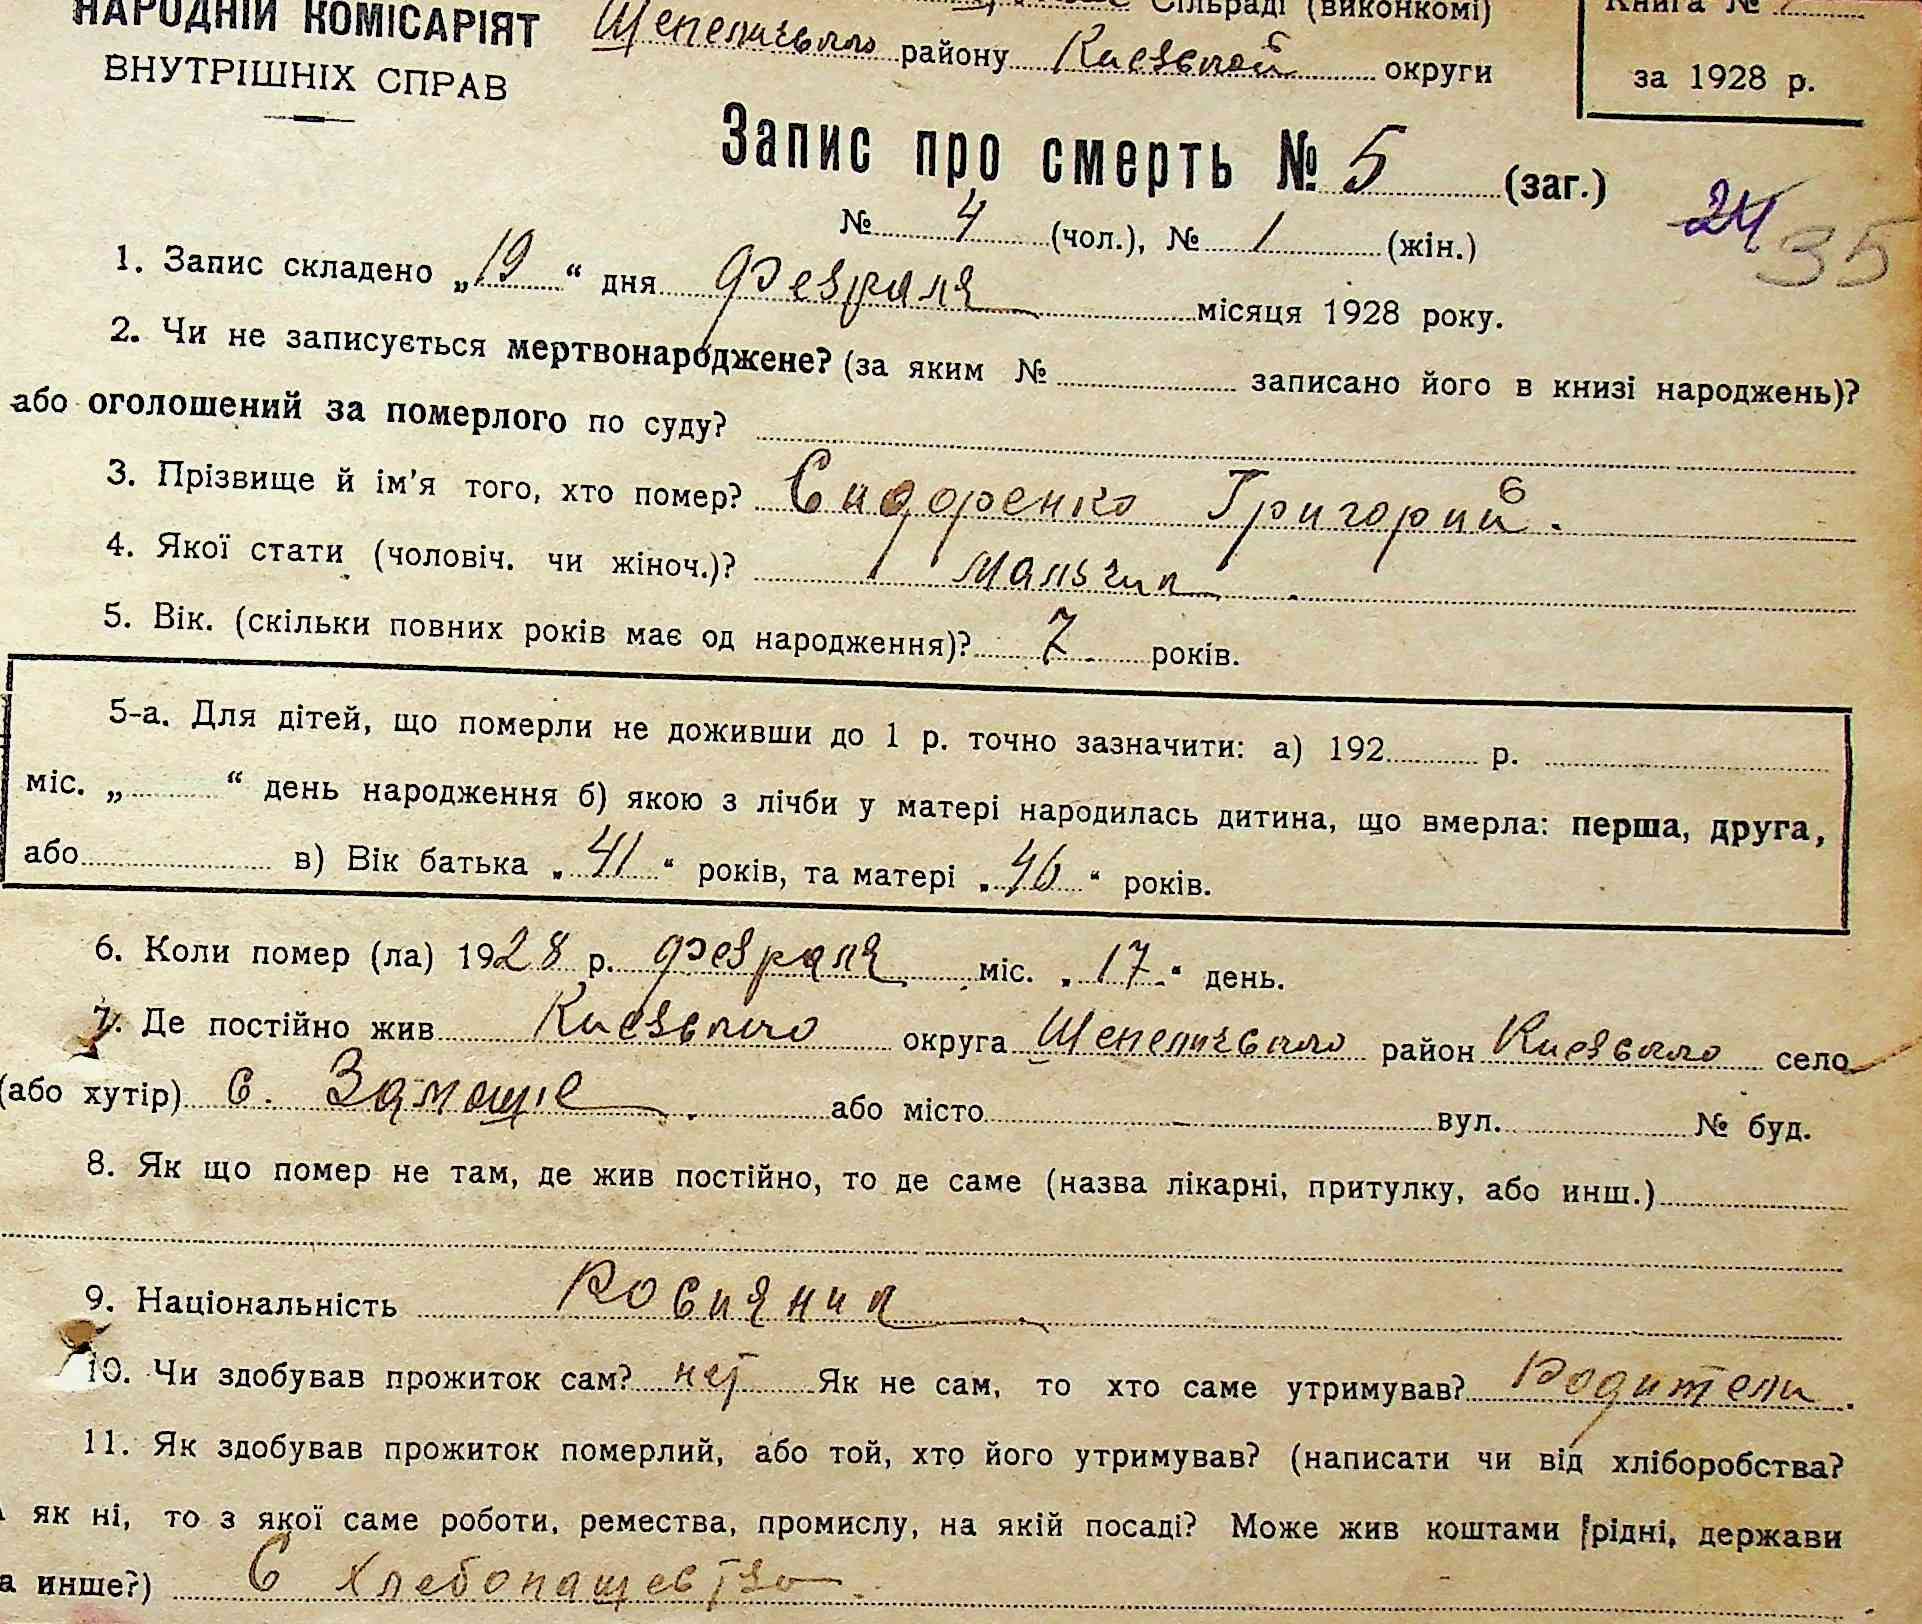 НАРОДНІЙ КОМІСАРІЯТ
ВНУТРІШНІХ СПРАВ
Сільраді (виконкомі)
Шепеличського району Киевской округи
Книга №
за 1928 р.
Запис про смерть № 5 (заг.)
24 35
№ 4 (чол.), № 1 (жін.)
1. Запис складено „19“ дня февраля місяця 1928 року.
2. Чи не записується мертвонароджене? (за яким № записано його в книзі народжень)?
або оголошений за померлого по суду?
3. Прізвище й ім'я того, хто помер? Сидоренко Григорий.
4. Якої стати (чоловіч. чи жіноч.)? мальчик
5. Вік. (скільки повних років має од народження)? 7 років.
5-а. Для дітей, що померли не доживши до 1 р. точно зазначити: а) 192 р.
міс. „ “ день народження б) якою з лічби у матері народилась дитина, що вмерла: перша, друга,
або в) Вік батька „41“ років, та матері „46“ років.
6. Коли помер (ла) 1928 р. февраля міс. „17“ день.
7. Де постійно жив Киевского округа Шепеличского район Киевского село
(або хутір) с. Замошне або місто вул. № буд.
8. Як що помер не там, де жив постійно, то де саме (назва лікарні, притулку, або инш.)
9. Національність Росиянин
10. Чи здобував прожиток сам? нет Як не сам, то хто саме утримував? Родители.
11. Як здобував прожиток померлий, або той, хто його утримував? (написати чи від хліборобства?
як ні, то з якої саме роботи, ремества, промислу, на якій посаді? Може жив коштами рідні, держави
а инше?) С хлебопашества